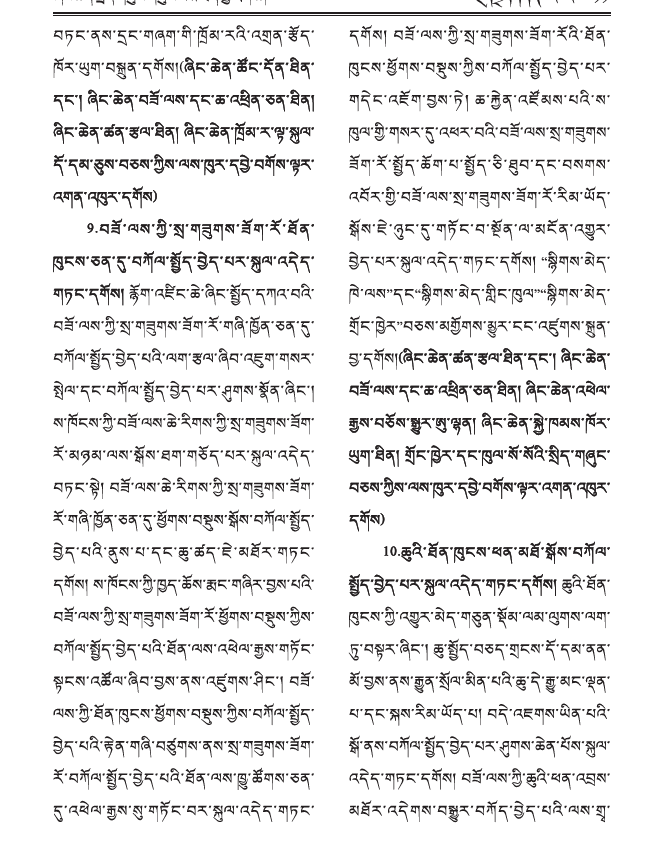 བཏང་ནས་དྲང་གཞག་གི་ཁྲོམ་རའི་འགྲན་རྩོད་
ཁོར་ཡུག་བསྐྲུན་དགོས།(ཞིང་ཆེན་ཚོང་དོན་ཐིན་
དང་། ཞིང་ཆེན་བཟོ་ལས་དང་ཆ་འཕྲིན་ཅན་ཐིན།
ཞིང་ཆེན་ཚན་རྩལ་ཐིན། ཞིང་ཆེན་ཁྲོམ་ར་ལྟ་སྐུལ་
དོ་དམ་ཅུས་བཅས་ཀྱིས་ལས་ཁུར་དབྱེ་བགོས་ལྟར་
འགན་འཁུར་དགོས)
9.བཟོ་ལས་ཀྱི་སྲ་གཟུགས་ཟོག་རོ་ཐོན་
ཁུངས་ཅན་དུ་བཀོལ་སྤྱོད་བྱེད་པར་སྐུལ་འདེད་
གཏང་དགོས། རྙོག་འཛིང་ཆེ་ཞིང་སྤྱོད་དཀའ་བའི་
བཟོ་ལས་ཀྱི་སྲ་གཟུགས་ཟོག་རོ་གཞི་ཁྱོན་ཅན་དུ་
བཀོལ་སྤྱོད་བྱེད་པའི་ལག་རྩལ་ཞིབ་འཇུག་གསར་
སྤེལ་དང་བཀོལ་སྤྱོད་བྱེད་པར་ཤུགས་སྣོན་ཞིང་།
ས་ཁོངས་ཀྱི་བཟོ་ལས་ཆེ་རིགས་ཀྱི་སྲ་གཟུགས་ཟོག་
རོ་མཉམ་ལས་སྒོས་ཐག་གཅོད་པར་སྐུལ་འདེད་
བཏང་སྟེ། བཟོ་ལས་ཆེ་རིགས་ཀྱི་སྲ་གཟུགས་ཟོག་
རོ་གཞི་ཁྱོན་ཅན་དུ་ཕྱོགས་བསྡུས་སྒོས་བཀོལ་སྤྱོད་
བྱེད་པའི་ནུས་པ་དང་ཆུ་ཚད་ཇེ་མཐོར་གཏང་
དགོས། ས་ཁོངས་ཀྱི་ཁྱད་ཆོས་རྨང་གཞིར་བྱས་པའི་
བཟོ་ལས་ཀྱི་སྲ་གཟུགས་ཟོག་རོ་ཕྱོགས་བསྡུས་ཀྱིས་
བཀོལ་སྤྱོད་བྱེད་པའི་ཐོན་ལས་འཕེལ་རྒྱས་གཏོང་
སྟངས་འཚོལ་ཞིབ་བྱས་ནས་འཛུགས་ཤིང་། བཟོ་
ལས་ཀྱི་ཐོན་ཁུངས་ཕྱོགས་བསྡུས་ཀྱིས་བཀོལ་སྤྱོད་
བྱེད་པའི་རྟེན་གཞི་བཙུགས་ནས་སྲ་གཟུགས་ཟོག་
རོ་བཀོལ་སྤྱོད་བྱེད་པའི་ཐོན་ལས་ཁྱུ་ཚོགས་ཅན་
དུ་འཕེལ་རྒྱས་སུ་གཏོང་བར་སྐུལ་འདེད་གཏང་
དགོས། བཟོ་ལས་ཀྱི་སྲ་གཟུགས་ཟོག་རོའི་ཐོན་
ཁུངས་ཕྱོགས་བསྡུས་ཀྱིས་བཀོལ་སྤྱོད་བྱེད་པར་
གདེང་འཇོག་བྱས་ཏེ། ཆ་རྐྱེན་འཛོམས་པའི་ས་
ཁུལ་གྱི་གསར་དུ་འཕར་བའི་བཟོ་ལས་སྲ་གཟུགས་
ཟོག་རོ་སྤྱོད་ཆོག་པ་སྤྱོད་ཅི་ཐུབ་དང་བསགས་
འབོར་གྱི་བཟོ་ལས་སྲ་གཟུགས་ཟོག་རོ་རིམ་ཡོད་
སྒོས་ཇེ་ཉུང་དུ་གཏོང་བ་སྔོན་ལ་མངོན་འགྱུར་
བྱེད་པར་སྐུལ་འདེད་གཏང་དགོས། “སྙིགས་མེད་
ཁེ་ལས”དང“སྙིགས་མེད་གླིང་ཁུལ”“སྙིགས་མེད་
གྲོང་ཁྱེར”བཅས་མགྱོགས་མྱུར་ངང་འཛུགས་སྐྲུན་
བྱ་དགོས།(ཞིང་ཆེན་ཚན་རྩལ་ཐིན་དང་། ཞིང་ཆེན་
བཟོ་ལས་དང་ཆ་འཕྲིན་ཅན་ཐིན། ཞིང་ཆེན་འཕེལ་
རྒྱས་བཅོས་སྒྱུར་ཨུ་ལྷན། ཞིང་ཆེན་སྐྱེ་ཁམས་ཁོར་
ཡུག་ཐིན། གྲོང་ཁྱེར་དང་ཁུལ་སོ་སོའི་སྲིད་གཞུང་
བཅས་ཀྱིས་ལས་ཁུར་དབྱེ་བགོས་ལྟར་འགན་འཁུར་
དགོས)
10.ཆུའི་ཐོན་ཁུངས་ཕན་མཐོ་སྒོས་བཀོལ་
སྤྱོད་བྱེད་པར་སྐུལ་འདེད་གཏང་དགོས། ཆུའི་ཐོན་
ཁུངས་ཀྱི་འགྱུར་མེད་གཅུན་སྡོམ་ལམ་ལུགས་ལག་
ཏུ་བསྟར་ཞིང་། ཆུ་སྤྱོད་བཅད་གྲངས་དོ་དམ་ནན་
མོ་བྱས་ནས་རྒྱུན་སྲོལ་མིན་པའི་ཆུ་དེ་རྒྱུ་མང་ལྡན་
པ་དང་སྐས་རིམ་ཡོད་པ། བདེ་འཇགས་ཡིན་པའི་
སྒོ་ནས་བཀོལ་སྤྱོད་བྱེད་པར་ཤུགས་ཆེན་པོས་སྐུལ་
འདེད་གཏང་དགོས། བཟོ་ལས་ཀྱི་ཆུའི་ཕན་འབྲས་
མཐོར་འདེགས་བསྒྱུར་བཀོད་བྱེད་པའི་ལས་གྲྭ་